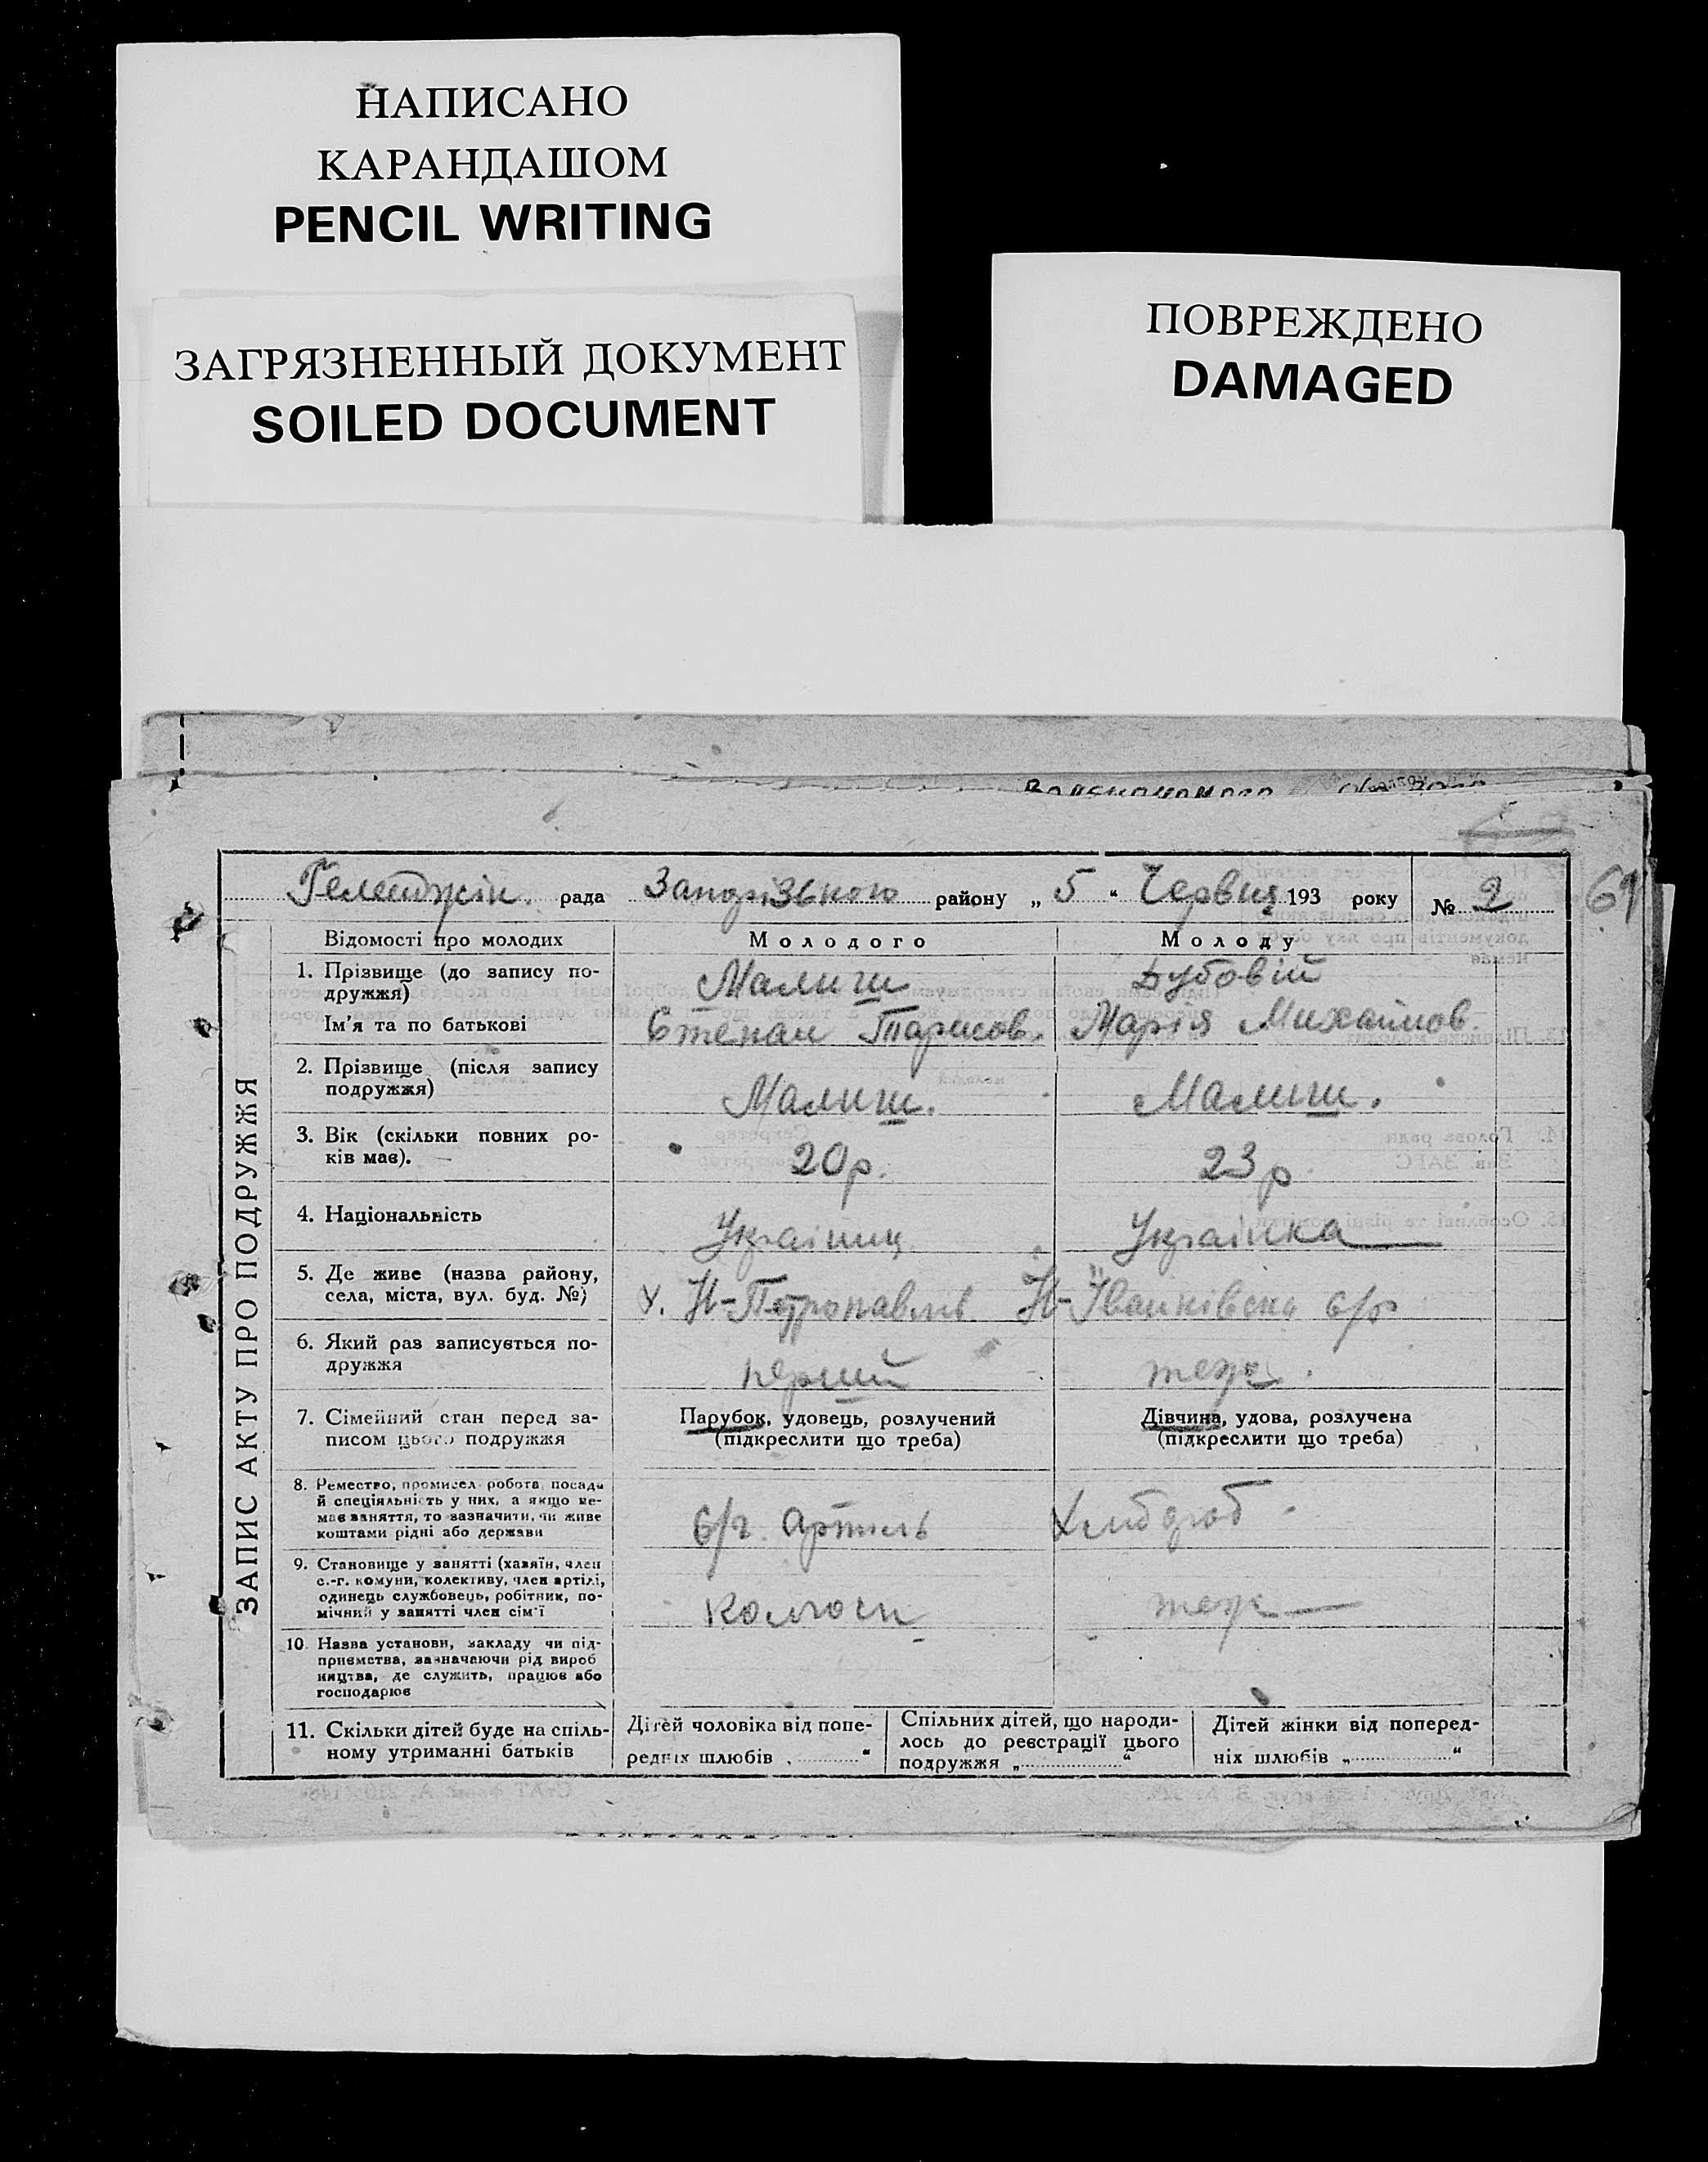 НАПИСАНО
КАРАНДАШОМ
PENCIL WRITING
ЗАГРЯЗНЕННЫЙ ДОКУМЕНТ
SOILED DOCUMENT
ПОВРЕЖДЕНО
DAMAGED
69
рада район у „ 5 “ Червня 193 року № 2
ЗАПИС АКТУ ПРО ПОДРУЖЖЯ
Відомості про молодих Молодого Молоду
1. Прізвище (до запису по- Малиш Дубовій
дружжя)
Ім'я та по батькові Степан Тарисов. Марія Михайлов.
2. Прізвище (після запису
подружжя) Малиш. Малиш.
3. Вік (скільки повних ро-
ків має). 20 р. 23 р.
4. Національність Українц Українка
5. Де живе (назва району,
села, міста, вул. буд. №) х. Н-Петропавлів. Н-Іванківська с/р
6. Який раз записується по-
дружжя перший теж.
7. Сімейний стан перед за- Парубок, удовець, розлучений Дівчина, удова, розлучена
писом цього подружжя (підкреслити що треба) (підкреслити що треба)
8. Ремество, промисел робота, посада
й спеціяльність у них, а якщо не-
має заняття, то зазначити, чи живе
коштами рідні або держави с/г. артіль Хлібороб.
9. Становище у занятті (хазяїн, член
с.-г. комуни, колективу, член артілі,
одинець службовець, робітник, по-
мічний у занятті член сім'ї теж
10. Назва установи, закладу чи під-
приємства, зазначаючи рід вироб
ництва, де служить, працює або
господарює
11. Скільки дітей буде на спіль- Дітей чоловіка від попе- Спільних дітей, що народи- Дітей жінки від поперед-
ному утриманні батьків редніх шлюбів „ “ лось до реєстрації цього ніх шлюбів „ “
подружжя „ “